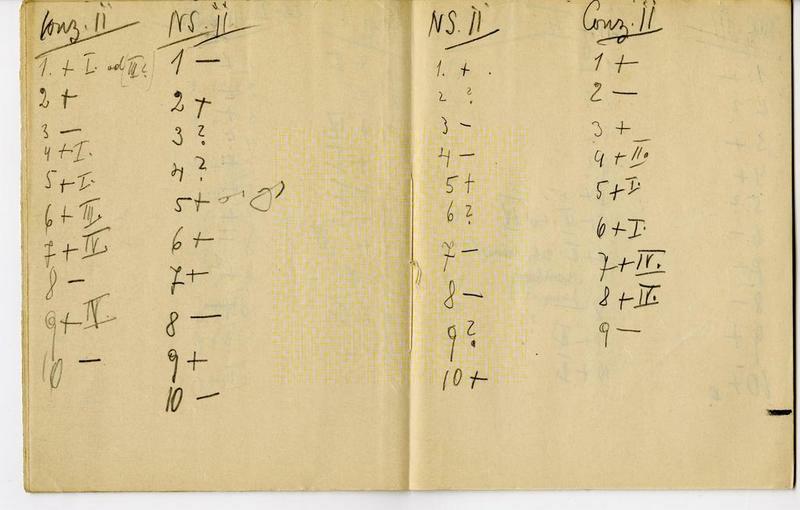 Conz. ii
1. + I. od (III?)
2 +
3 –
4 + I.
5 + I.
6 + III.
7 + IV.
8 –
9 + IV.
10 –
NS. ii
1 –
2 +
3 ?
4 ?
5 +
6 +
7 +
8 –
9 +
10 –
NS. ii
1. +
2 ?
3 –
4 –
5 +
6 ?
7 –
8 –
9 ?
10 +
Conz. ii
1 +
2 –
3 +
4 + II.
5 + I.
6 + I.
7 + IV.
8 + IV.
9 –